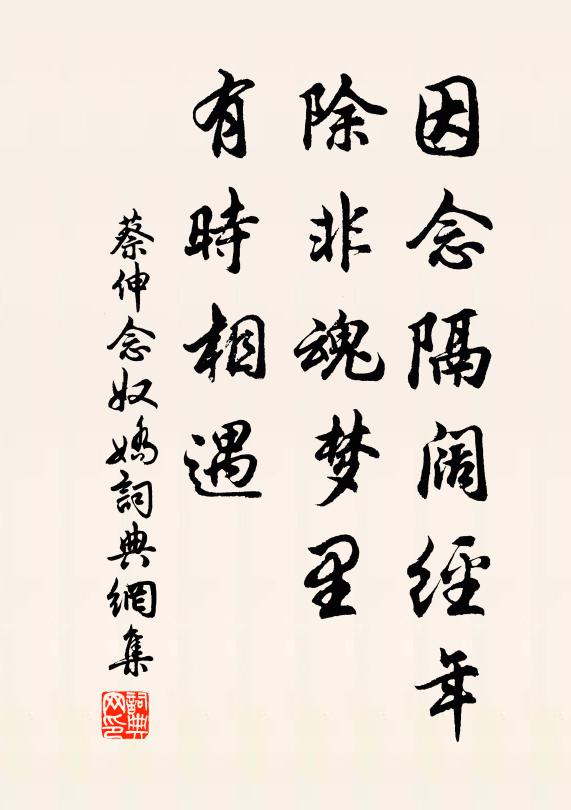 因念隔阔經年
除非魂梦里
有時相遇
蔡伸念奴嬌詞典網集
詞典网印